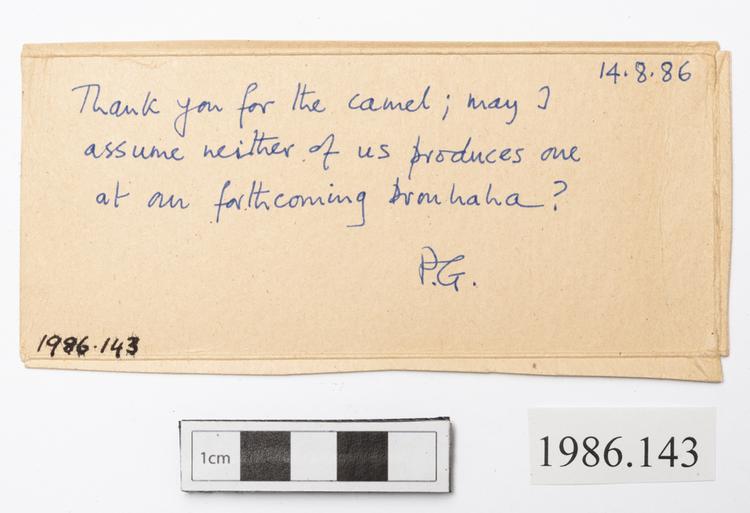 14.8.86
Thank you for the camel; may I
assume neither of us produces one
at our forthcoming brouhaha?
P.G.
1986.143
1cm
1986.143